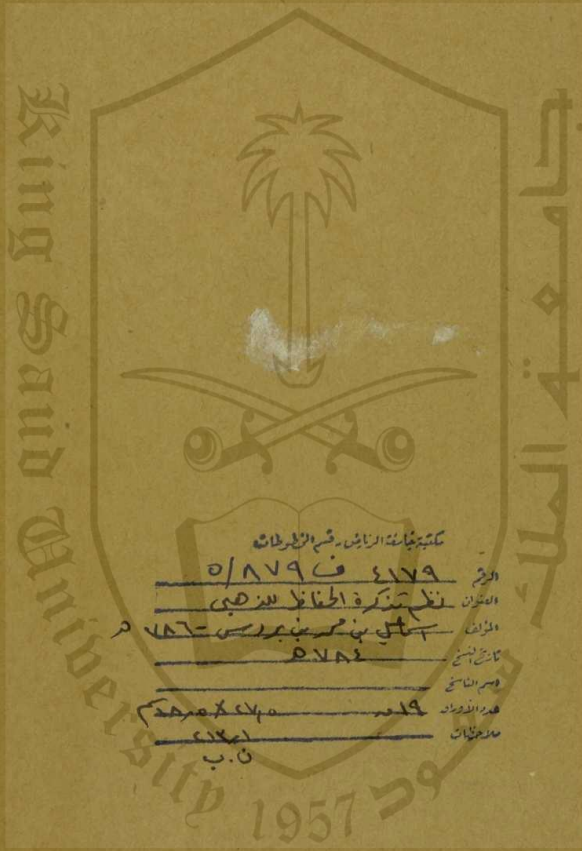 King Saud University
جامعة الملك سعود
1957
مكتبة جامعة الرياض - قسم المخطوطات
الرقم ٤١٧٩ ف ٥/٨٧٩
العنوان نظم تذكرة الحفاظ للذهبي
المؤلف اسماعيل بن محمد بن بردس - ٧٨٦ هـ
تاريخ النسخ ٧٨٤ هـ
اسم الناسخ
عدد الأوراق ١٩ ٢٧٫٥ × ١٨٫٥ سم
ملاحظات ٢١٣٫١
ن.ب